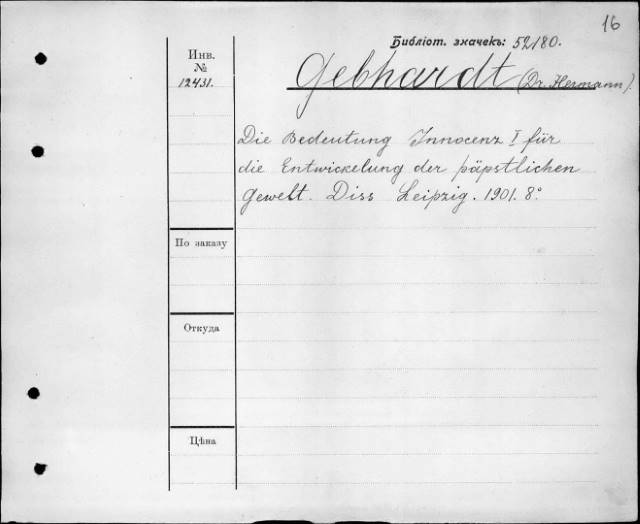 16
Библіот. значекъ: 52180.
Инв.
№
12431.
Gebhardt (Dr. Hermann).
Die Bedeutung Innocenz I für
die Entwickelung der päpstlichen
Gewelt. Diss Leipzig. 1901. 8°.
По заказу
Откуда
Цѣна